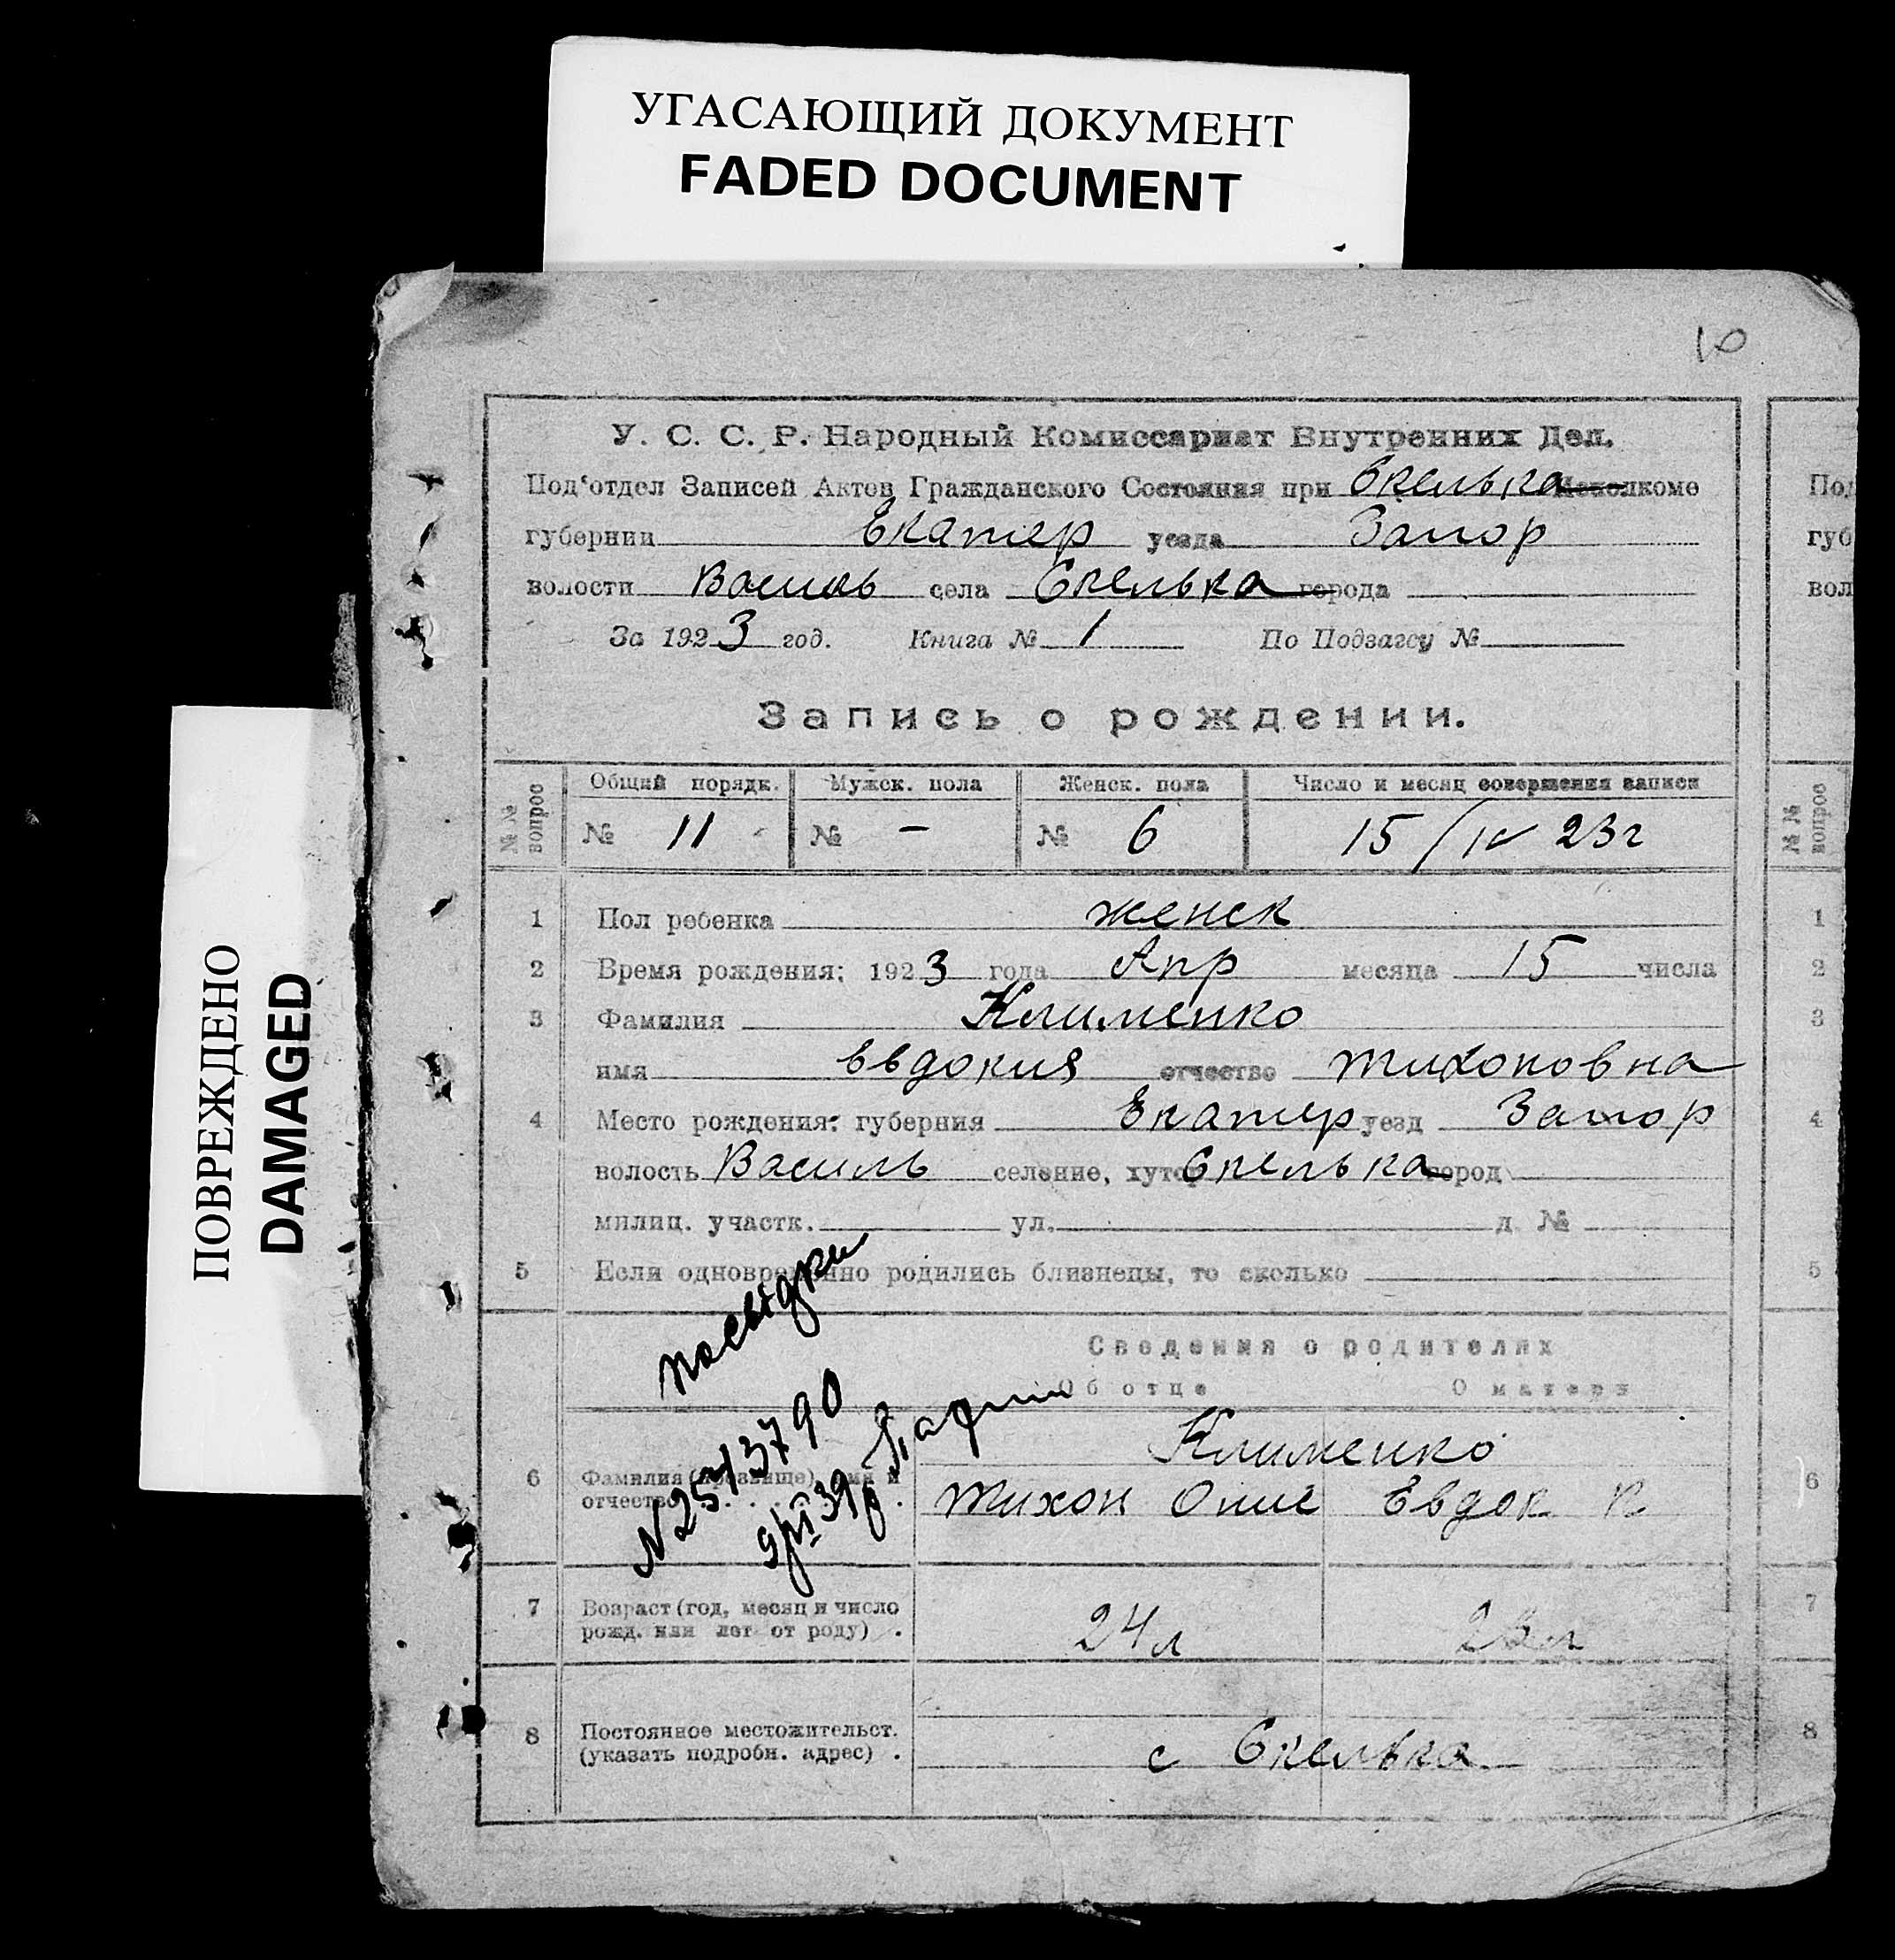 УГАСАЮЩИЙ ДОКУМЕНТ
FADED DOCUMENT
ПОВРЕЖДЕНО
DAMAGED
10
У. С. С. Р. Народный Комиссариат Внутренних Дел.
Под‘отдел Записей Актов Гражданского Состояния при Скелька Исполкоме
губернии Екатер уезда Запор
волости Василь села Скелька города
За 1923 год. Книга № 1 По Подзагсу №
Запись о рождении.
№ № вопрос
Общий порядк. Мужск. пола Женск. пола Число и месяц совершения записи
№ 11 № - № 6 15/IV 23г
1 Пол ребенка женск
2 Время рождения: 1923 года Апр месяца 15 числа
3 Фамилия Клименко
имя Евдокия отчество Тихоновна
4 Место рождения: губерния Екатер уезд Запор
волость Василь селение, хутор Скелька город
милиц. участк. ул. д. №
5 Если одновременно родились близнецы, то сколько
Сведения о родителях
Об отце О матери
6 Фамилия (прозвище), имя и
отчество
Клименко
Тихон Оние Евдок К
7 Возраст (год, месяц и число
рожд. или лет от роду) .
24л
8 Постоянное местожительст.
(указать подробн. адрес) .
с Скелька
посвідки
N 2543790
9/VI 39р
Под
губ
вол
№ № вопрос
1
2
3
4
5
6
7
8